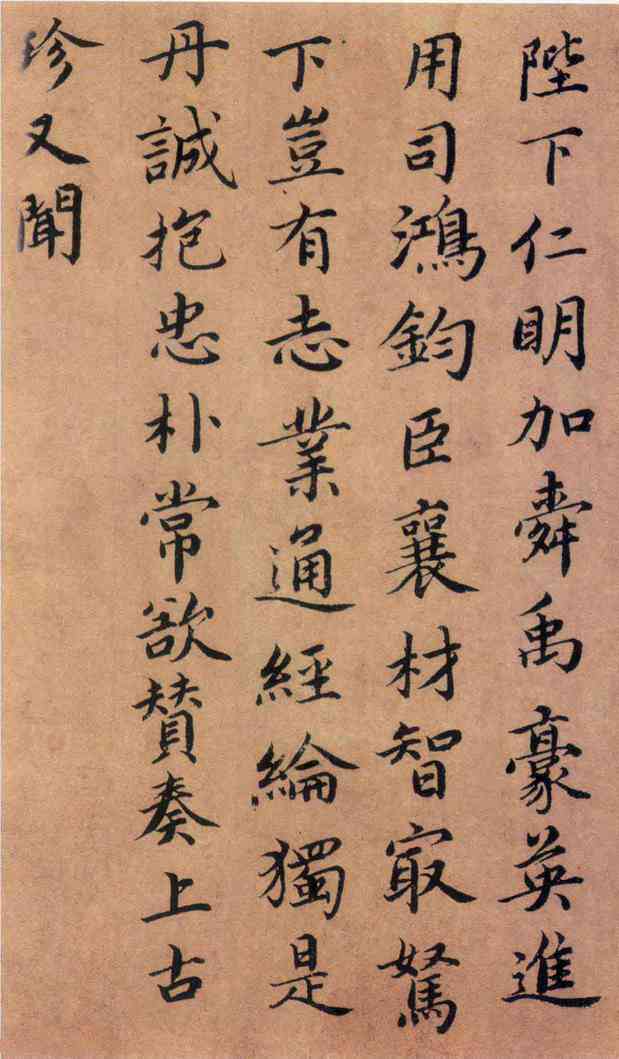 陛下仁明加舜禹豪英進
用司鴻鈞臣襄材智㝡駑
下豈有志業通經綸獨是
丹誠抱忠朴常欲贊奏上古
珍又聞